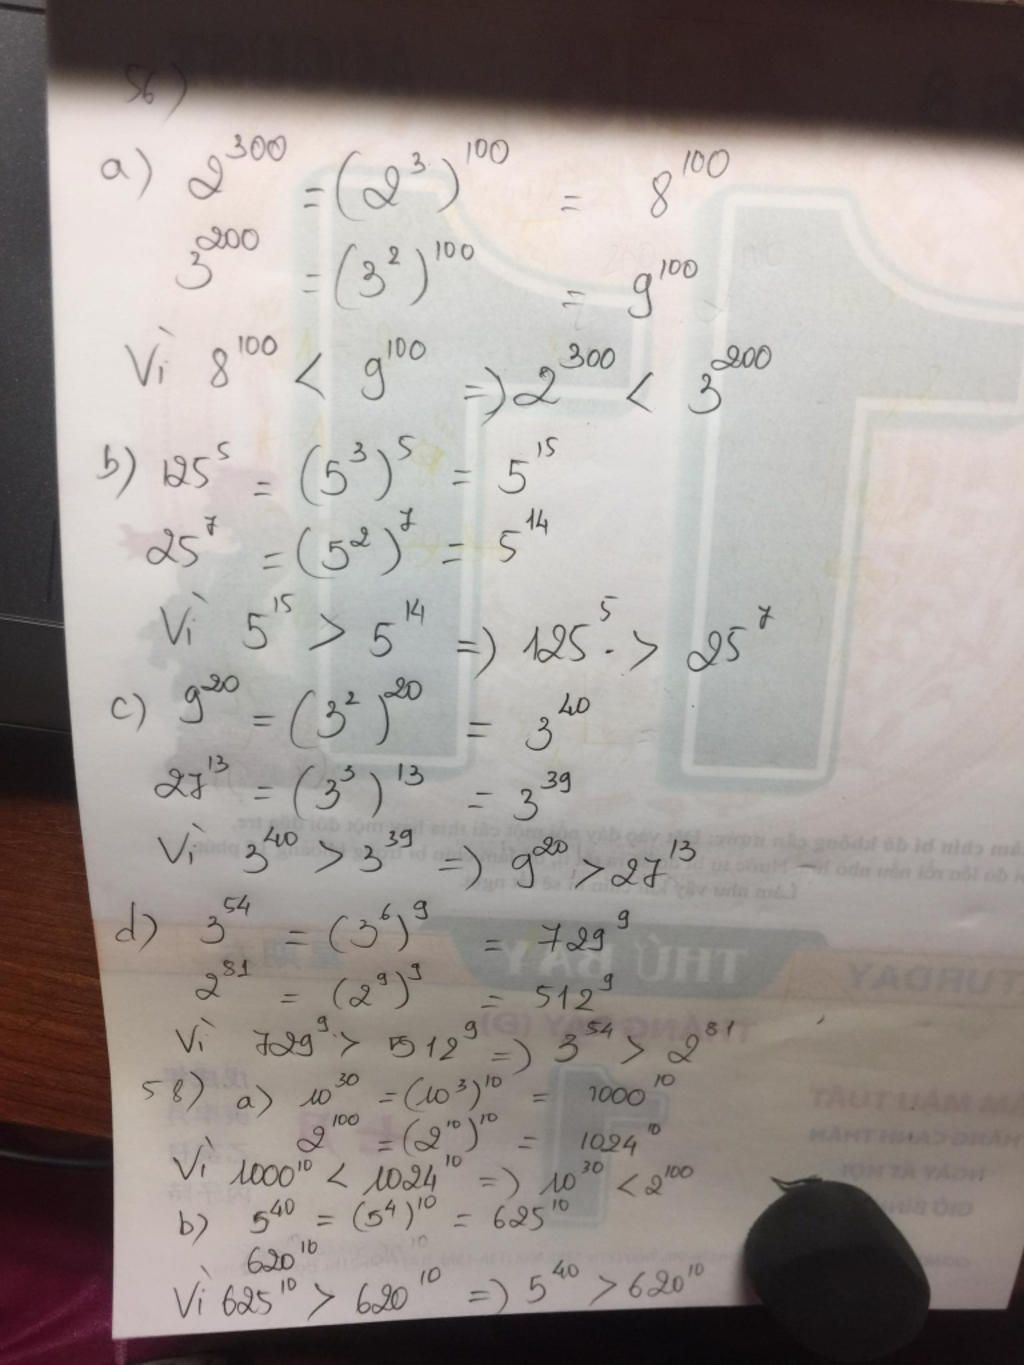 56)
a) 2³⁰⁰ = (2³)¹⁰⁰ = 8¹⁰⁰
3²⁰⁰ = (3²)¹⁰⁰ = 9¹⁰⁰
Vì 8¹⁰⁰ < 9¹⁰⁰ => 2³⁰⁰ < 3²⁰⁰
b) 125⁵ = (5³)⁵ = 5¹⁵
25⁷ = (5²)⁷ = 5¹⁴
Vì 5¹⁵ > 5¹⁴ => 125⁵ > 25⁷
c) 9²⁰ = (3²)²⁰ = 3⁴⁰
27¹³ = (3³)¹³ = 3³⁹
Vì 3⁴⁰ > 3³⁹ => 9²⁰ > 27¹³
d) 3⁵⁴ = (3⁶)⁹ = 729⁹
2⁸¹ = (2⁹)⁹ = 512⁹
Vì 729⁹ > 512⁹ => 3⁵⁴ > 2⁸¹
58) a) 10³⁰ = (10³)¹⁰ = 1000¹⁰
2¹⁰⁰ = (2¹⁰)¹⁰ = 1024¹⁰
Vì 1000¹⁰ < 1024¹⁰ => 10³⁰ < 2¹⁰⁰
b) 5⁴⁰ = (5⁴)¹⁰ = 625¹⁰
620¹⁰
Vì 625¹⁰ > 620¹⁰ => 5⁴⁰ > 620¹⁰
THỨ BẢY